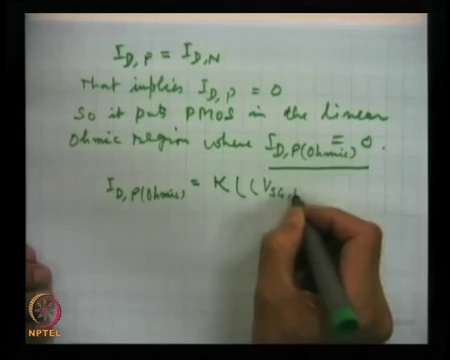 I_D,P = I_D,N
That implies I_D,P = 0
So it puts PMOS in the linear
Ohmic region where I_D,P(Ohmic) = 0.
I_D,P(Ohmic) = K [ ( V_SG,
NPTEL